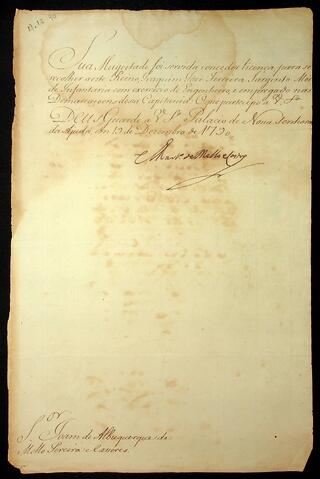 Sua Magestade foi servida conceder licença, para se
recolher a este Reino, Joaquim José Ferreira, Sargento Mór
de Infantaria com exercicio de Engenheiro, e empregado nas
Demarcaçoens dessa Capitania. O que participo a V. S.ª
DEUS Guarde a V. S.ª Palacio de Nossa Senhora
da Ajuda, em 13 de Dezembro de 1790.
Mart.º de Mello e Castro
S.ºr Joam de Albuquerque de
Mello Pereira e Caceres.